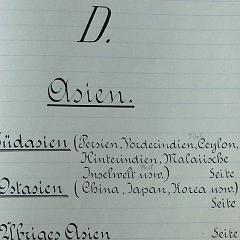 D.
Asien.
Südasien (Persien, Vorderindien, Ceylon,
Hinterindien, Malaiische
Inselwelt usw.) Seite
Ostasien (China, Japan, Korea usw.)
Seite
Übriges Asien Seite